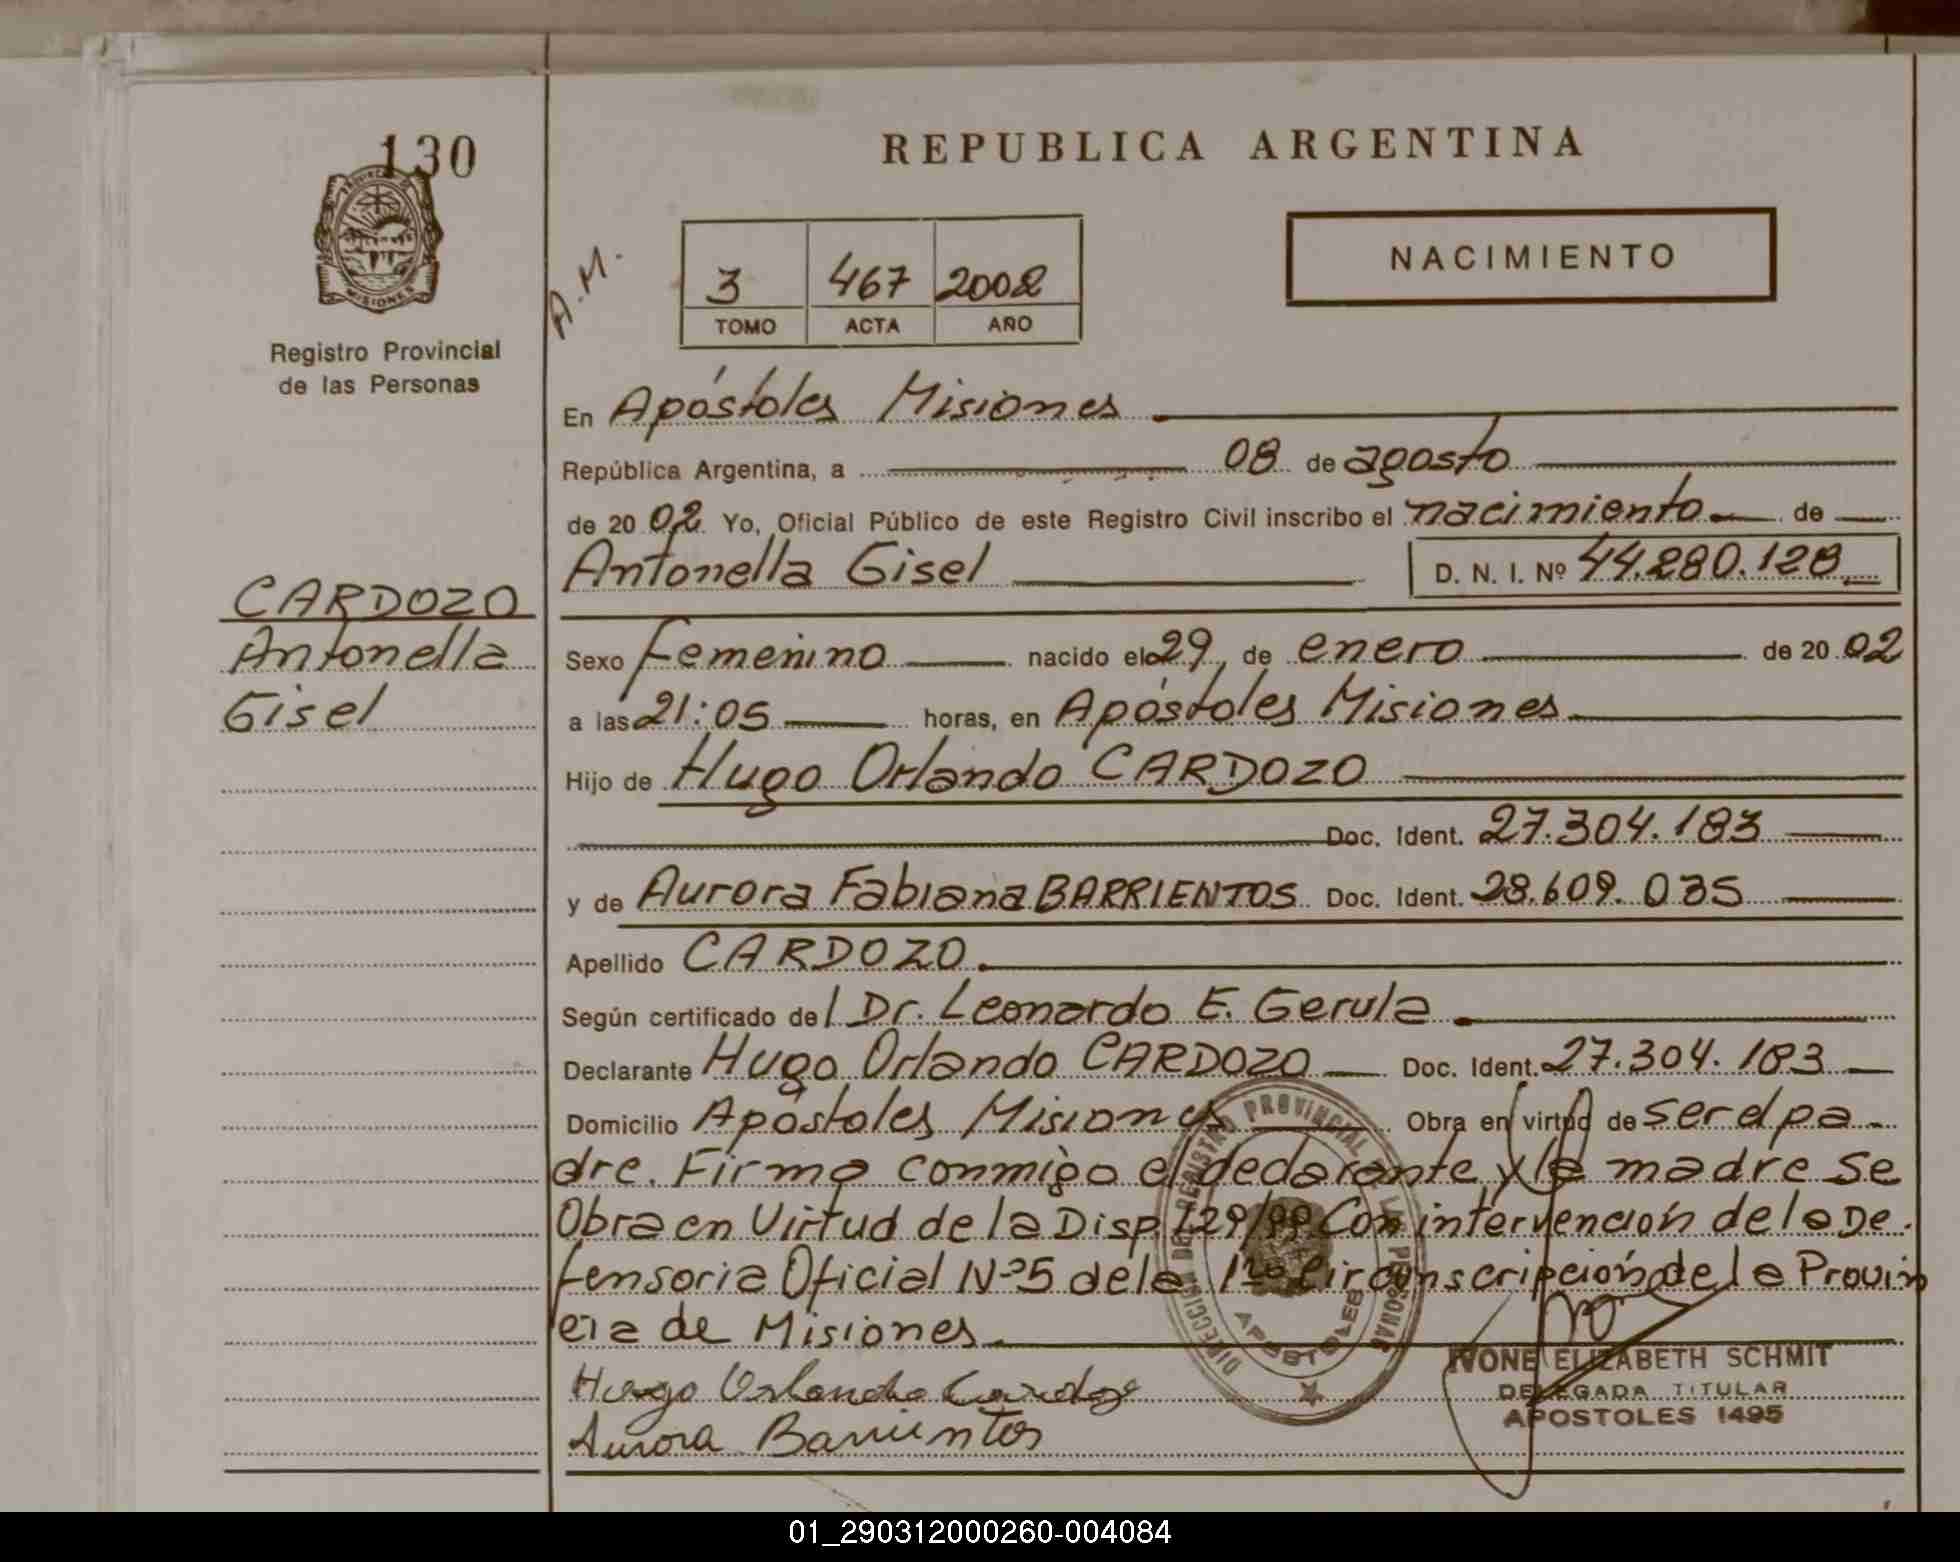 130
PROVINCIA DE
MISIONES
Registro Provincial
de las Personas
CARDOZO
Antonella
Gisel
REPUBLICA ARGENTINA
A.M.
3 467 2002
TOMO ACTA AÑO
NACIMIENTO
En Apóstoles Misiones
República Argentina, a 08 de agosto
de 20 02. Yo, Oficial Público de este Registro Civil inscribo el nacimiento de
Antonella Gisel D. N. I. Nº 44.280.128
Sexo Femenino nacido el 29 de enero de 20 02
a las 21:05 horas, en Apóstoles Misiones
Hijo de Hugo Orlando CARDOZO
Doc. Ident. 27.304.183
y de Aurora Fabiana BARRIENTOS Doc. Ident. 28.609.035
Apellido CARDOZO
Según certificado del Dr. Leonardo E. Gerula
Declarante Hugo Orlando CARDOZO Doc. Ident. 27.304.183
Domicilio Apóstoles Misiones Obra en virtud de ser el pa-
dre. Firma conmigo el declarante y la madre se
Obra en Virtud de la Disp. 129/99 Con intervención de la De-
fensoria Oficial Nº 5 de la 1ra Circunscripción de la Provin
cia de Misiones
Hugo Orlando Cardozo
Aurora Barrientos
DIRECCION DEL REGISTRO PROVINCIAL DE LAS PERSONAS
APOSTOLES
IVONE ELIZABETH SCHMIT
DELEGADA TITULAR
APOSTOLES 1495
01_290312000260-004084